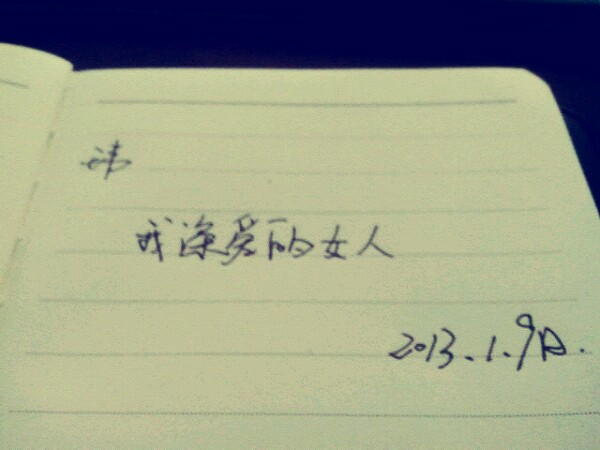 我深爱的女人
2013.1.9日.